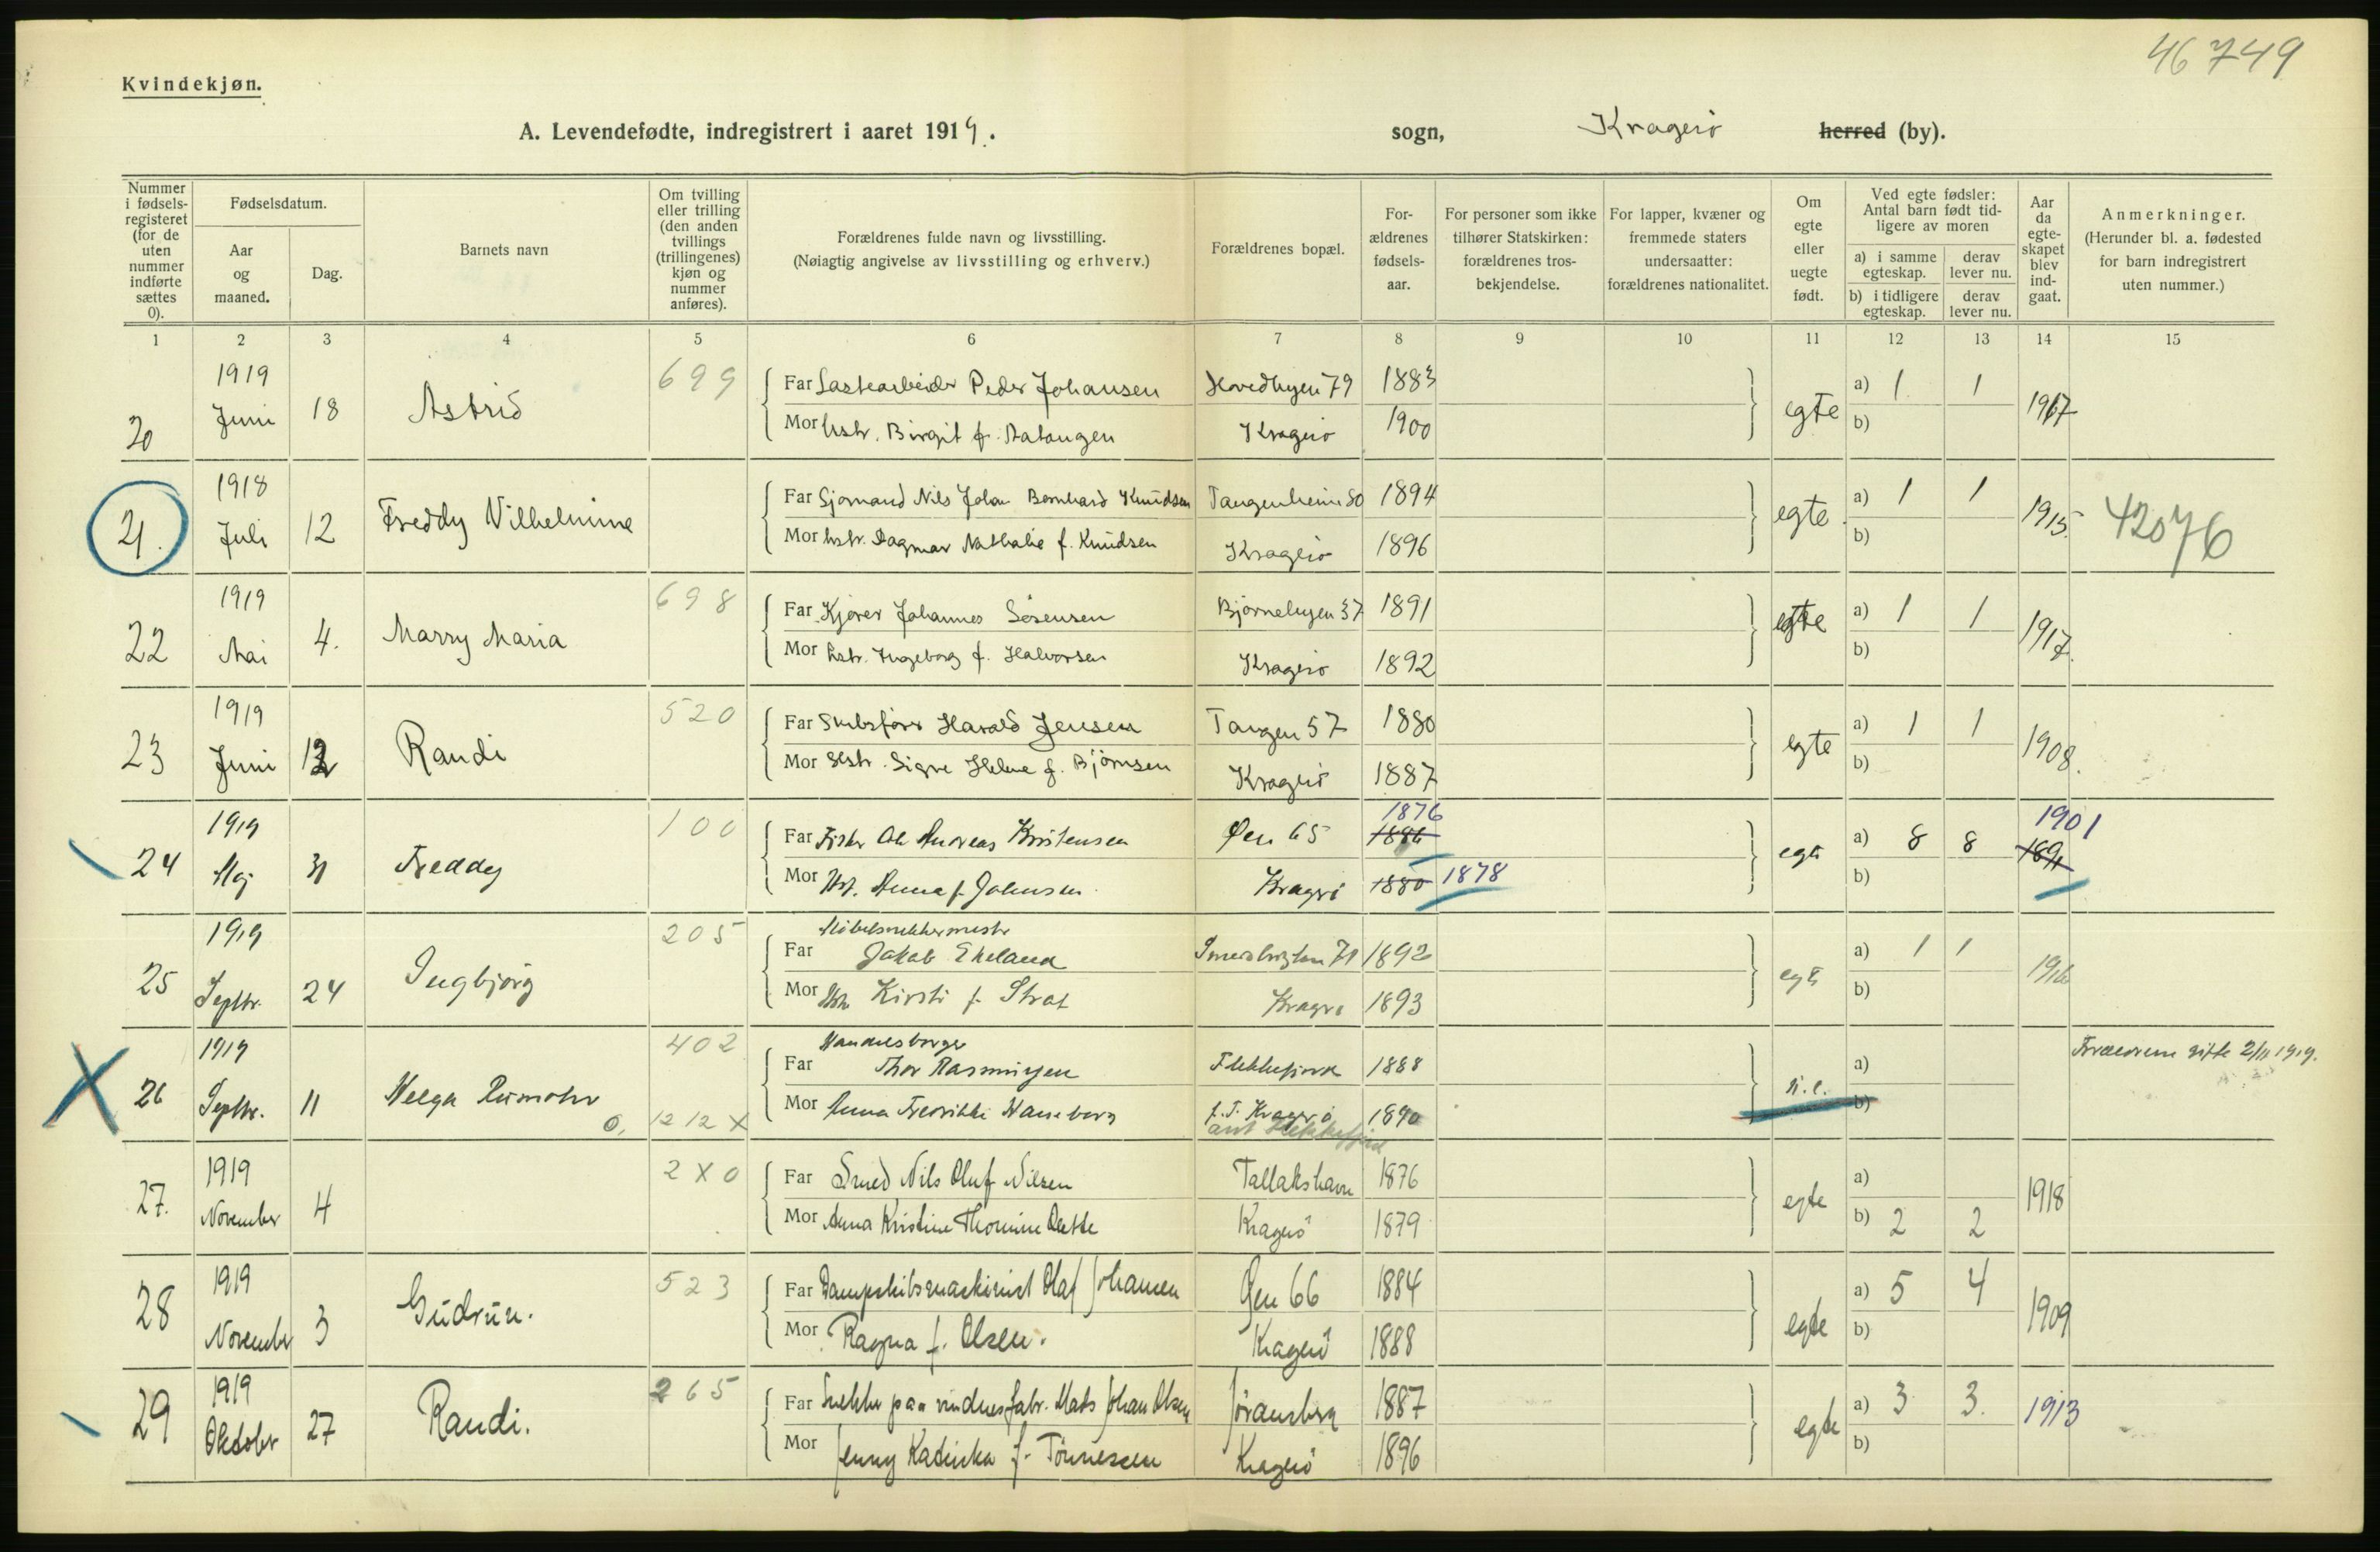 46749
Kvindekjøn.
A. Levendefødte, indregistrert i aaret 1919. sogn, Kragerö herred (by).
Nummer i fødselsregisteret (for de uten nummer indførte sættes 0).
Fødselsdatum.
Aar og maaned.
Dag.
Barnets navn
Om tvilling eller trilling (den anden tvillings (trillingenes) kjøn og nummer anføres).
Forældrenes fulde navn og livsstilling.
(Nøiagtig angivelse av livsstilling og erhverv.)
Forældrenes bopæl.
Forældrenes fødselsaar.
For personer som ikke tilhører Statskirken: forældrenes trosbekjendelse.
For lapper, kvæner og fremmede staters undersaatter: forældrenes nationalitet.
Om egte eller uegte født.
Ved egte fødsler: Antal barn født tidligere av moren
a) i samme egteskap. derav lever nu.
b) i tidligere egteskap. derav lever nu.
Aar da egteskapet blev indgaat.
Anmerkninger.
(Herunder bl. a. fødested for barn indregistrert uten nummer.)
1 2 3 4 5 6 7 8 9 10 11 12 13 14 15
20 1919 Juni 18 Astrid 699
Far Lastearbeider Peder Johansen Hovedbyen 79 1883 egte a) 1 1 1917
Mor hstr. Birgit f. Kragerö 1900 b)
21. 1918 Juli 12 Freddy Vilhelmine
Far Sjømand Nils Johan Bernhard Knudsen Tangenheim 80 1894 egte a) 1 1 1915. 42076
Mor hstr. Dagmar Nathalie f. Knudsen Kragerö 1896 b)
22 1919 Mai 4. Marry Maria 698
Far Kjører Johannes Sörensen Björnebyen 37 1891 egte a) 1 1 1917.
Mor hstr. Ingeborg f. Halvorsen Kragerö 1892 b)
23 1919 Juni 12 Randi 520
Far Skibsfører Harald Jensen Tangen 57 1880 egte a) 1 1 1908.
Mor Hstr. Signe Helene f. Björnsen Kragerö 1887 b)
24 1919 Maj 31 Freddy 100
Far Fisker Ole Andreas Kristensen Øen 65 1876 1886 egte a) 8 8 1901 1891
Mor Hst. Anna f. Johnsen Kragerö 1880 1878 b)
25 1919 Septbr. 24 Ingbjörg 205
Møbelsnekkermester
Far Jakob Ekeland 71 1892 egte a) 1 1 1916
Mor Hstr Kirsti f. Kragerø 1893 b)
26 1919 Septbr. 11 Helga Rumohr 402
Handelsborger
Far Thor Rasmussen Flekkefjord 1888 u.e. a) Forældrene gifte 2/11 1919.
0, 12 12 X Mor Anna Fredrikke f. T. Kragerø 1890 b)
ant Flekkefjord
27. 1919 November 4 2 X 0
Far Smed Nils Oluf Nilsen Tallakshavn 1876 egte a) 1918
Mor Anna Kristine Thomine Kragerö 1879 b) 2 2
28 1919 November 3 Gudrun. 523
Far Dampskibsmaskinist Olaf Johansen Øen 66 1884 egte a) 5 4 1909
Mor Ragna f. Olsen. Kragerö 1888 b)
29 1919 Oktober 27 Randi. 265
Far Snekker paa vinduesfabr. Mads Johan Olsen Jöransberg 1887 egte a) 3 3. 1913
Mor Jenny Katinka f. Tönnessen Kragerö 1896 b)